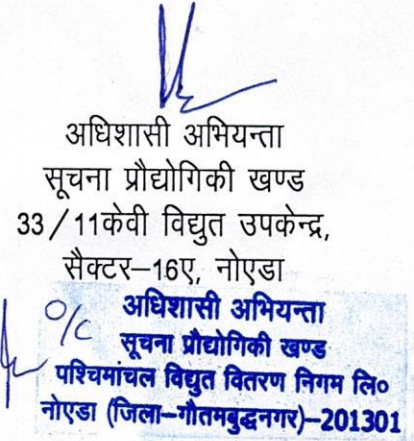 अधिशासी अभियन्ता
सूचना प्रौद्योगिकी खण्ड
33/11केवी विद्युत उपकेन्द्र,
सैक्टर–16ए, नोएडा
O/C
अधिशासी अभियन्ता
सूचना प्रौद्योगिकी खण्ड
पश्चिमांचल विद्युत वितरण निगम लि०
नोएडा (जिला–गौतमबुद्धनगर)–201301